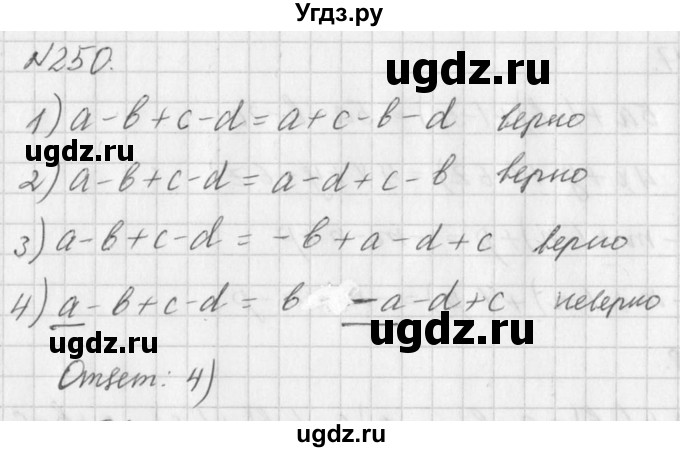 Угдз.ру
№250.
ugdz.ru
1) a-b+c-d=a+c-b-d верно
ugdz.ru
2) a-b+c-d=a-d+c-b верно
3) a-b+c-d=-b+a-d+c верно
4) a-b+c-d= b -a-d+c неверно
ugdz.ru
ugdz.ru
Ответ: 4)
ugdz.ru